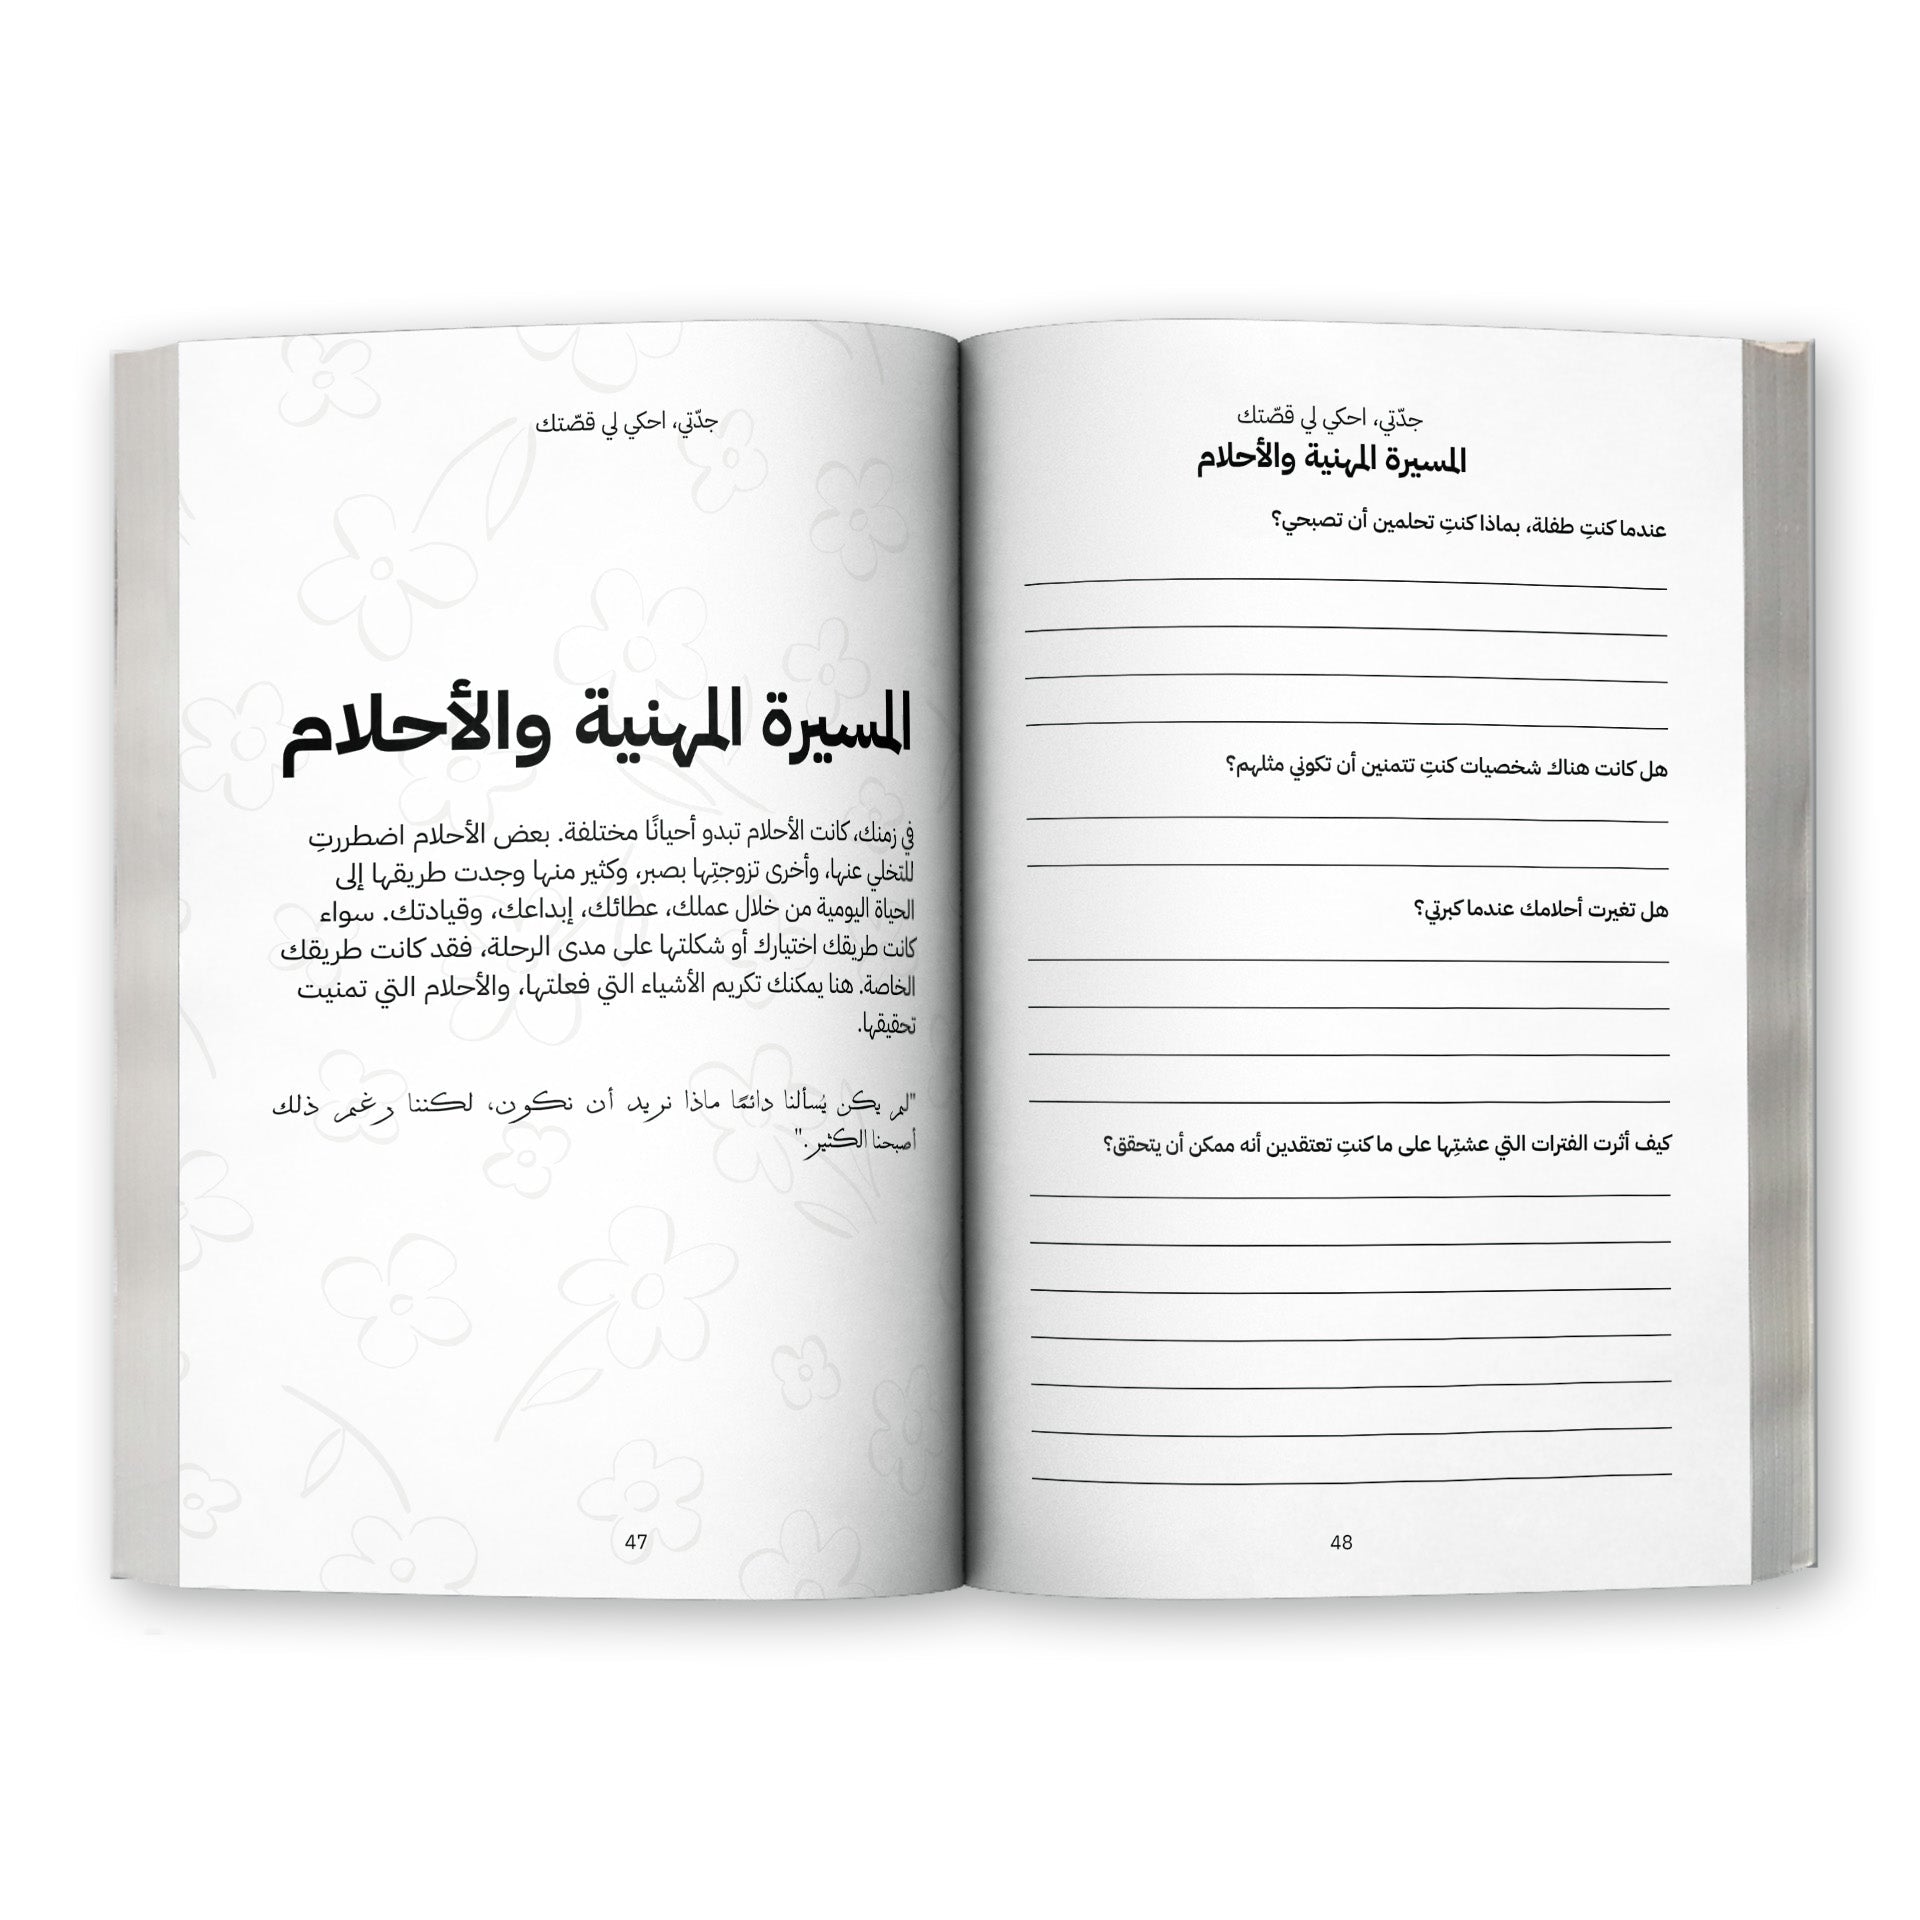 جدّتي، احكي لي قصّتك
المسيرة المهنية والأحلام
في زمنك، كانت الأحلام تبدو أحيانًا مختلفة. بعض الأحلام اضطررتِ
للتخلي عنها، وأخرى تزوجتِها بصبر، وكثير منها وجدت طريقها إلى
الحياة اليومية من خلال عملك، عطائك، إبداعك، وقيادتك. سواء
كانت طريقك اختيارك أو شكلتها على مدى الرحلة، فقد كانت طريقك
الخاصة. هنا يمكنك تكريم الأشياء التي فعلتها، والأحلام التي تمنيت
تحقيقها.
"لم يكن يُسألنا دائمًا ماذا نريد أن نكون، لكننا رغم ذلك
أصبحنا الكثير."
47
جدّتي، احكي لي قصّتك
المسيرة المهنية والأحلام
عندما كنتِ طفلة، بماذا كنتِ تحلمين أن تصبحي؟
هل كانت هناك شخصيات كنتِ تتمنين أن تكوني مثلهم؟
هل تغيرت أحلامك عندما كبرتي؟
كيف أثرت الفترات التي عشتِها على ما كنتِ تعتقدين أنه ممكن أن يتحقق؟
48